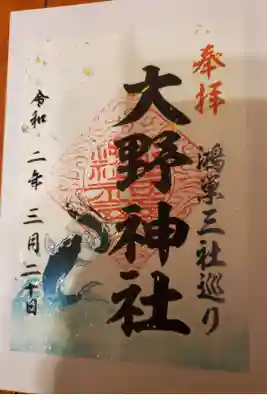 奉拝
鴻巣三社巡り
大野神社
令和二年三月二十日